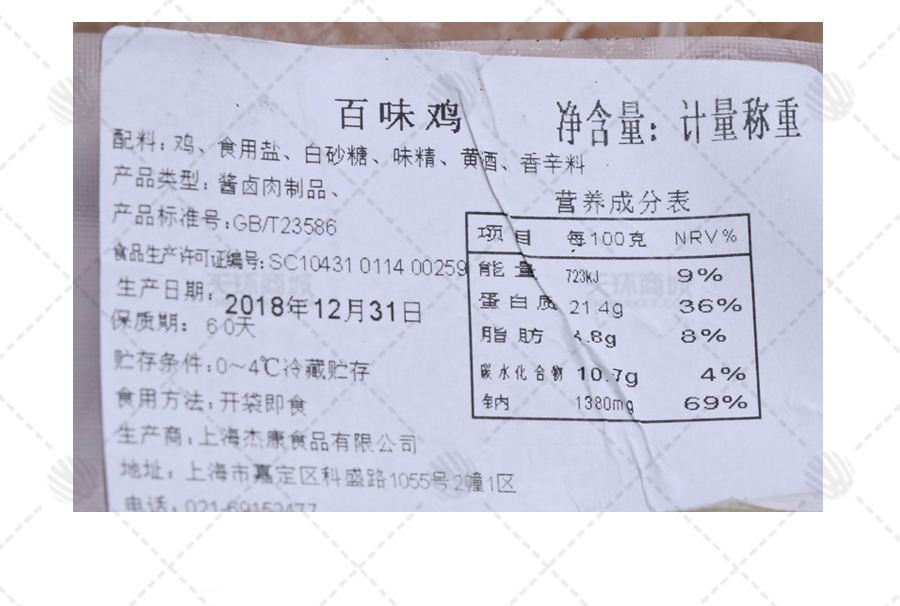 百味鸡
净含量：计量称重
配料：鸡、食用盐、白砂糖、味精、黄酒、香辛料
产品类型：酱卤肉制品、
产品标准号：GB/T23586
食品生产许可证编号：SC10431 0114 00259
生产日期：2018年12月31日
保质期：60天
贮存条件：0～4℃冷藏贮存
食用方法：开袋即食
生产商：上海杰康食品有限公司
地址：上海市嘉定区科盛路1055号2幢1区
电话：021-69152477
营养成分表
项目 每100克 NRV%
能量 723kJ 9%
蛋白质 21.4g 36%
脂肪 4.8g 8%
碳水化合物 10.7g 4%
钠 1380mg 69%